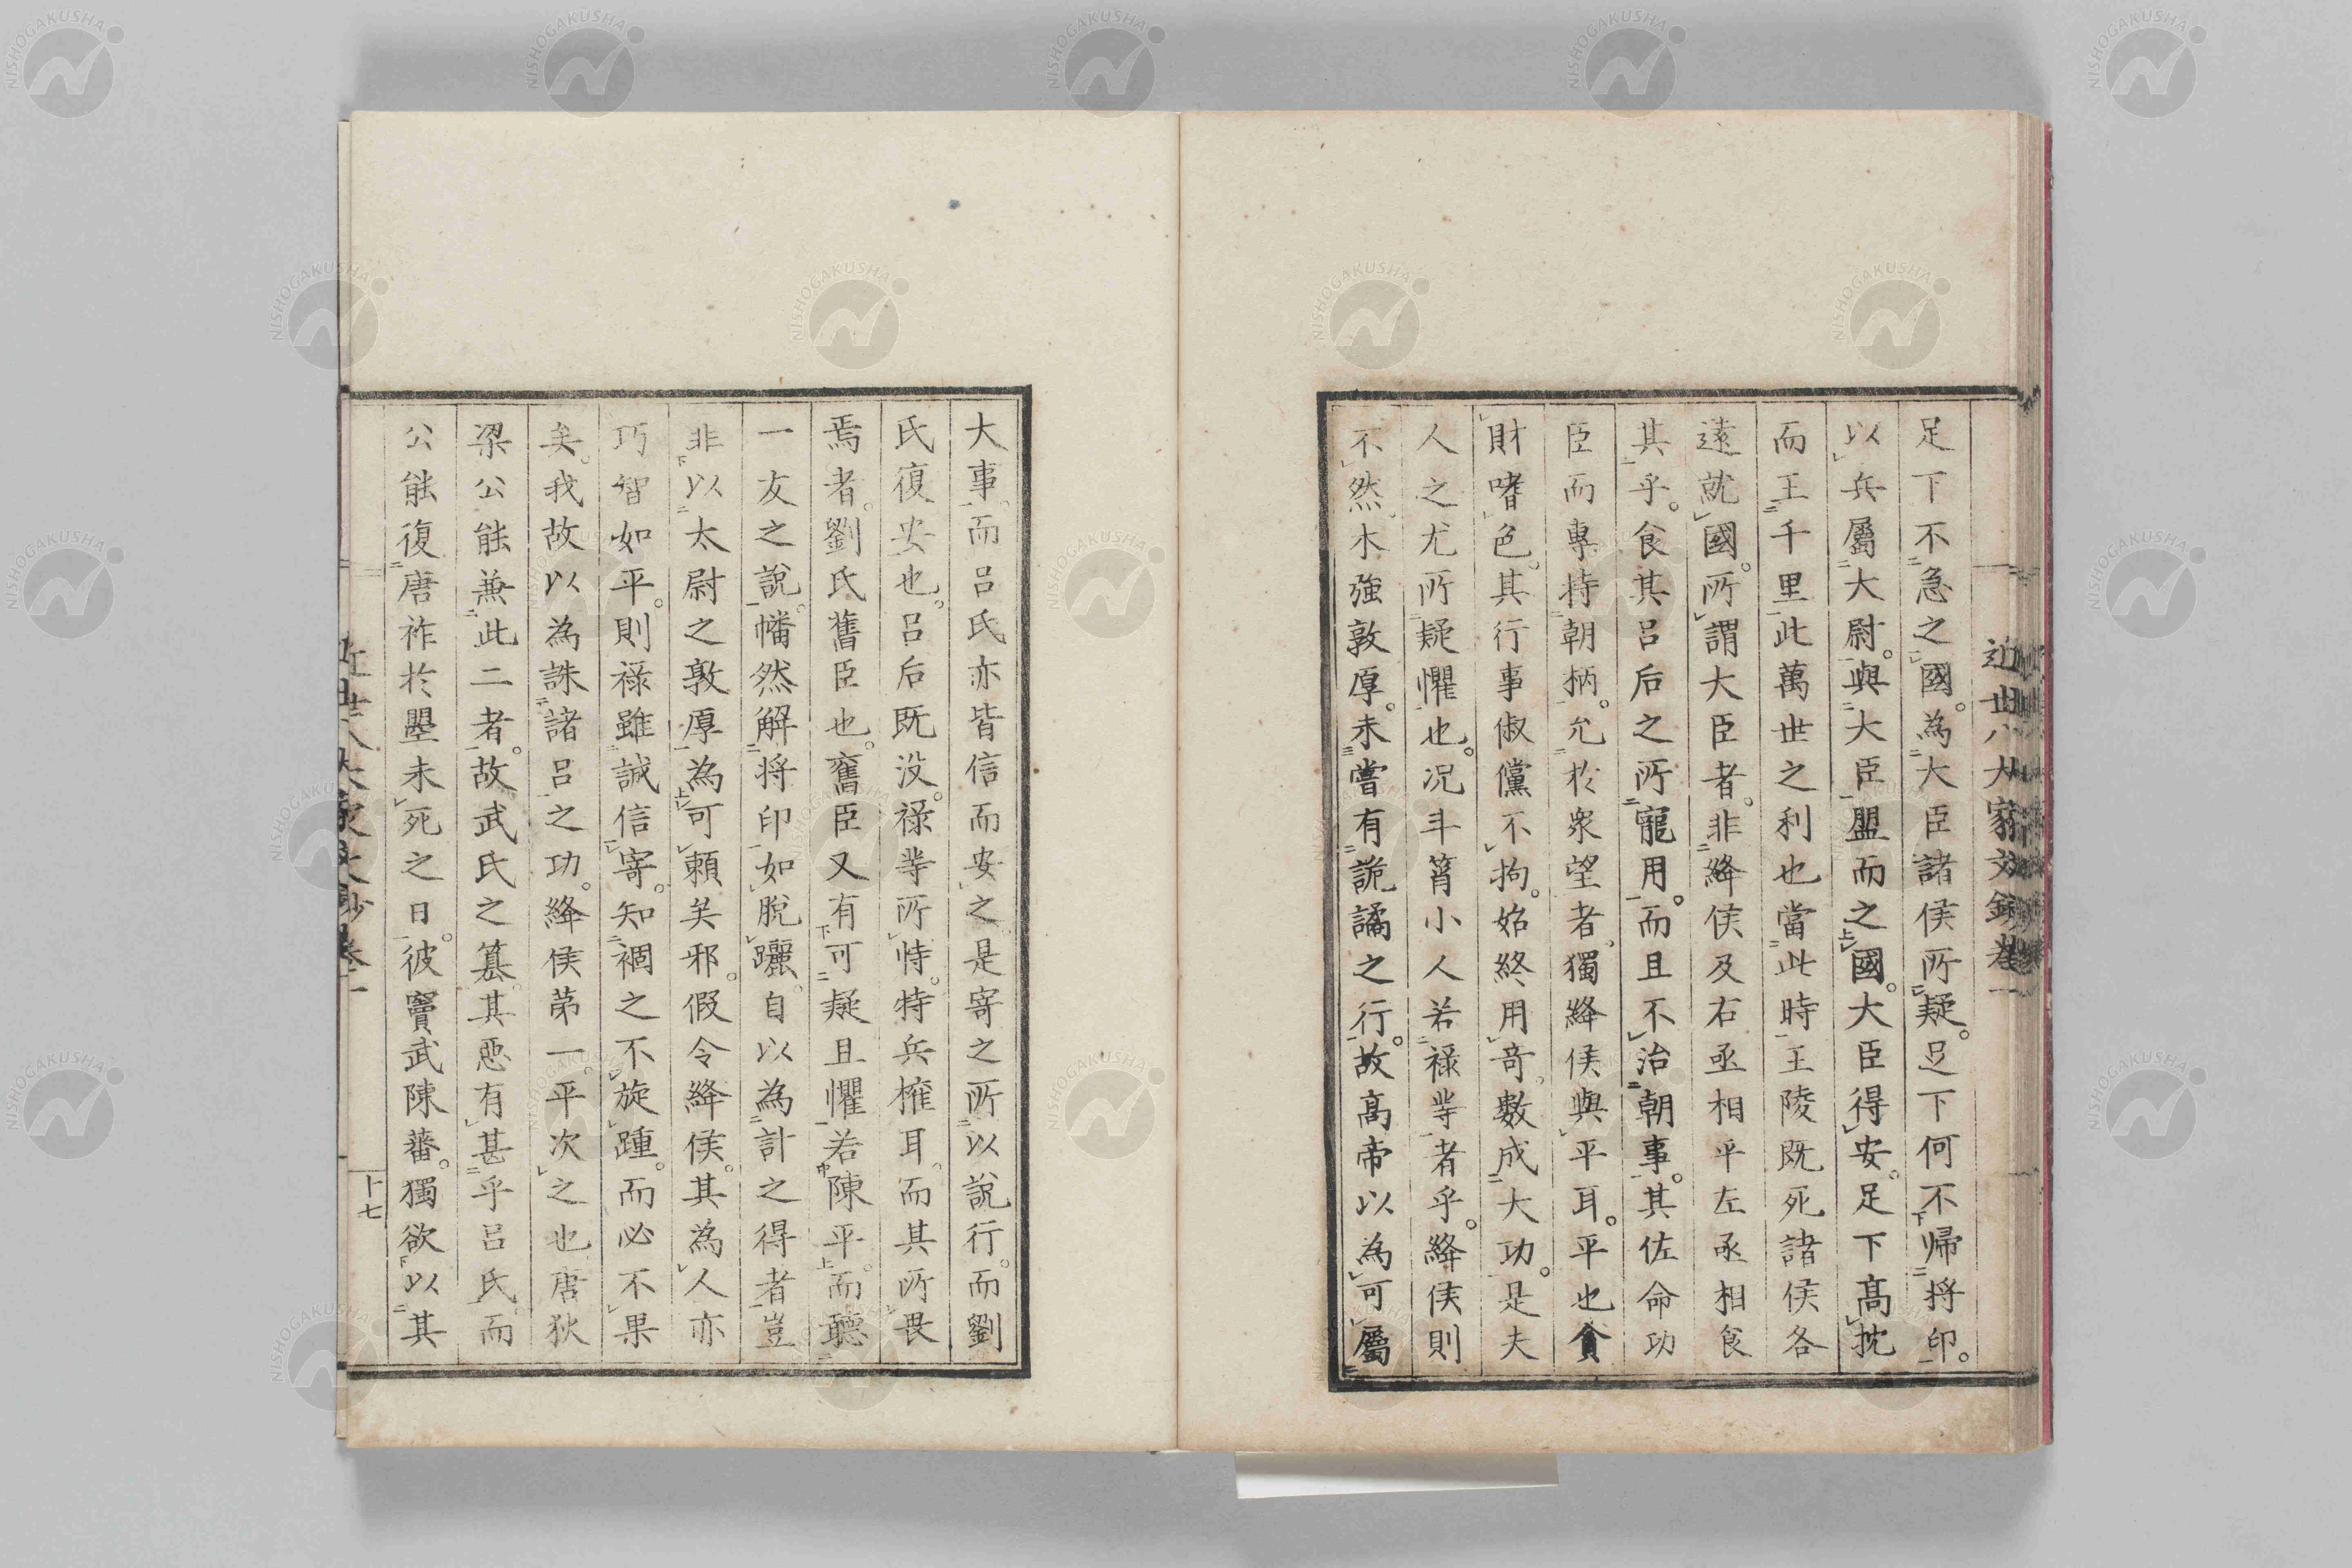 足下不急之國。為大臣諸侯所疑。足下何不帰將印。
以兵屬大尉。與大臣盟而之國。大臣得安。足下高枕
而王千里此萬世之利也當此時王陵既死諸侯各
遠就國。所謂大臣者。非絳侯及右丞相平左丞相食
其乎。食其呂后之所寵用。而且不治朝事。其佐命功
臣而專持朝柄。允於衆望者。獨絳侯與平耳。平也貪
財嗜色。其行事俶儻不拘。始終用奇。數成大功。是夫
人之尤所疑懼也。況斗筲小人若祿等者乎。絳侯則
不然木強敦厚。未嘗有詭譎之行。故高帝以為可屬
大事。而呂氏亦皆信而安之。是寄之所以說行。而劉
氏復安也。呂后既没。祿等所恃。特兵權耳。而其所畏
焉者。劉氏舊臣也。舊臣又有可疑且懼若陳平。而聽
一友之說。幡然解將印如脫躧。自以為計之得者豈
非以太尉之敦厚為可頼矣邪。假令絳侯。其為人亦
巧智如平。則祿雖誠信寄。知禍之不旋踵。而必不果
矣。我故以為誅諸呂之功。絳侯第一。平次之也唐狄
梁公能兼此二者。故武氏之簒。其惡有甚乎呂氏。而
公能復唐祚於墾未死之日。彼竇武陳蕃。獨欲以其
近世八大家文鈔卷一